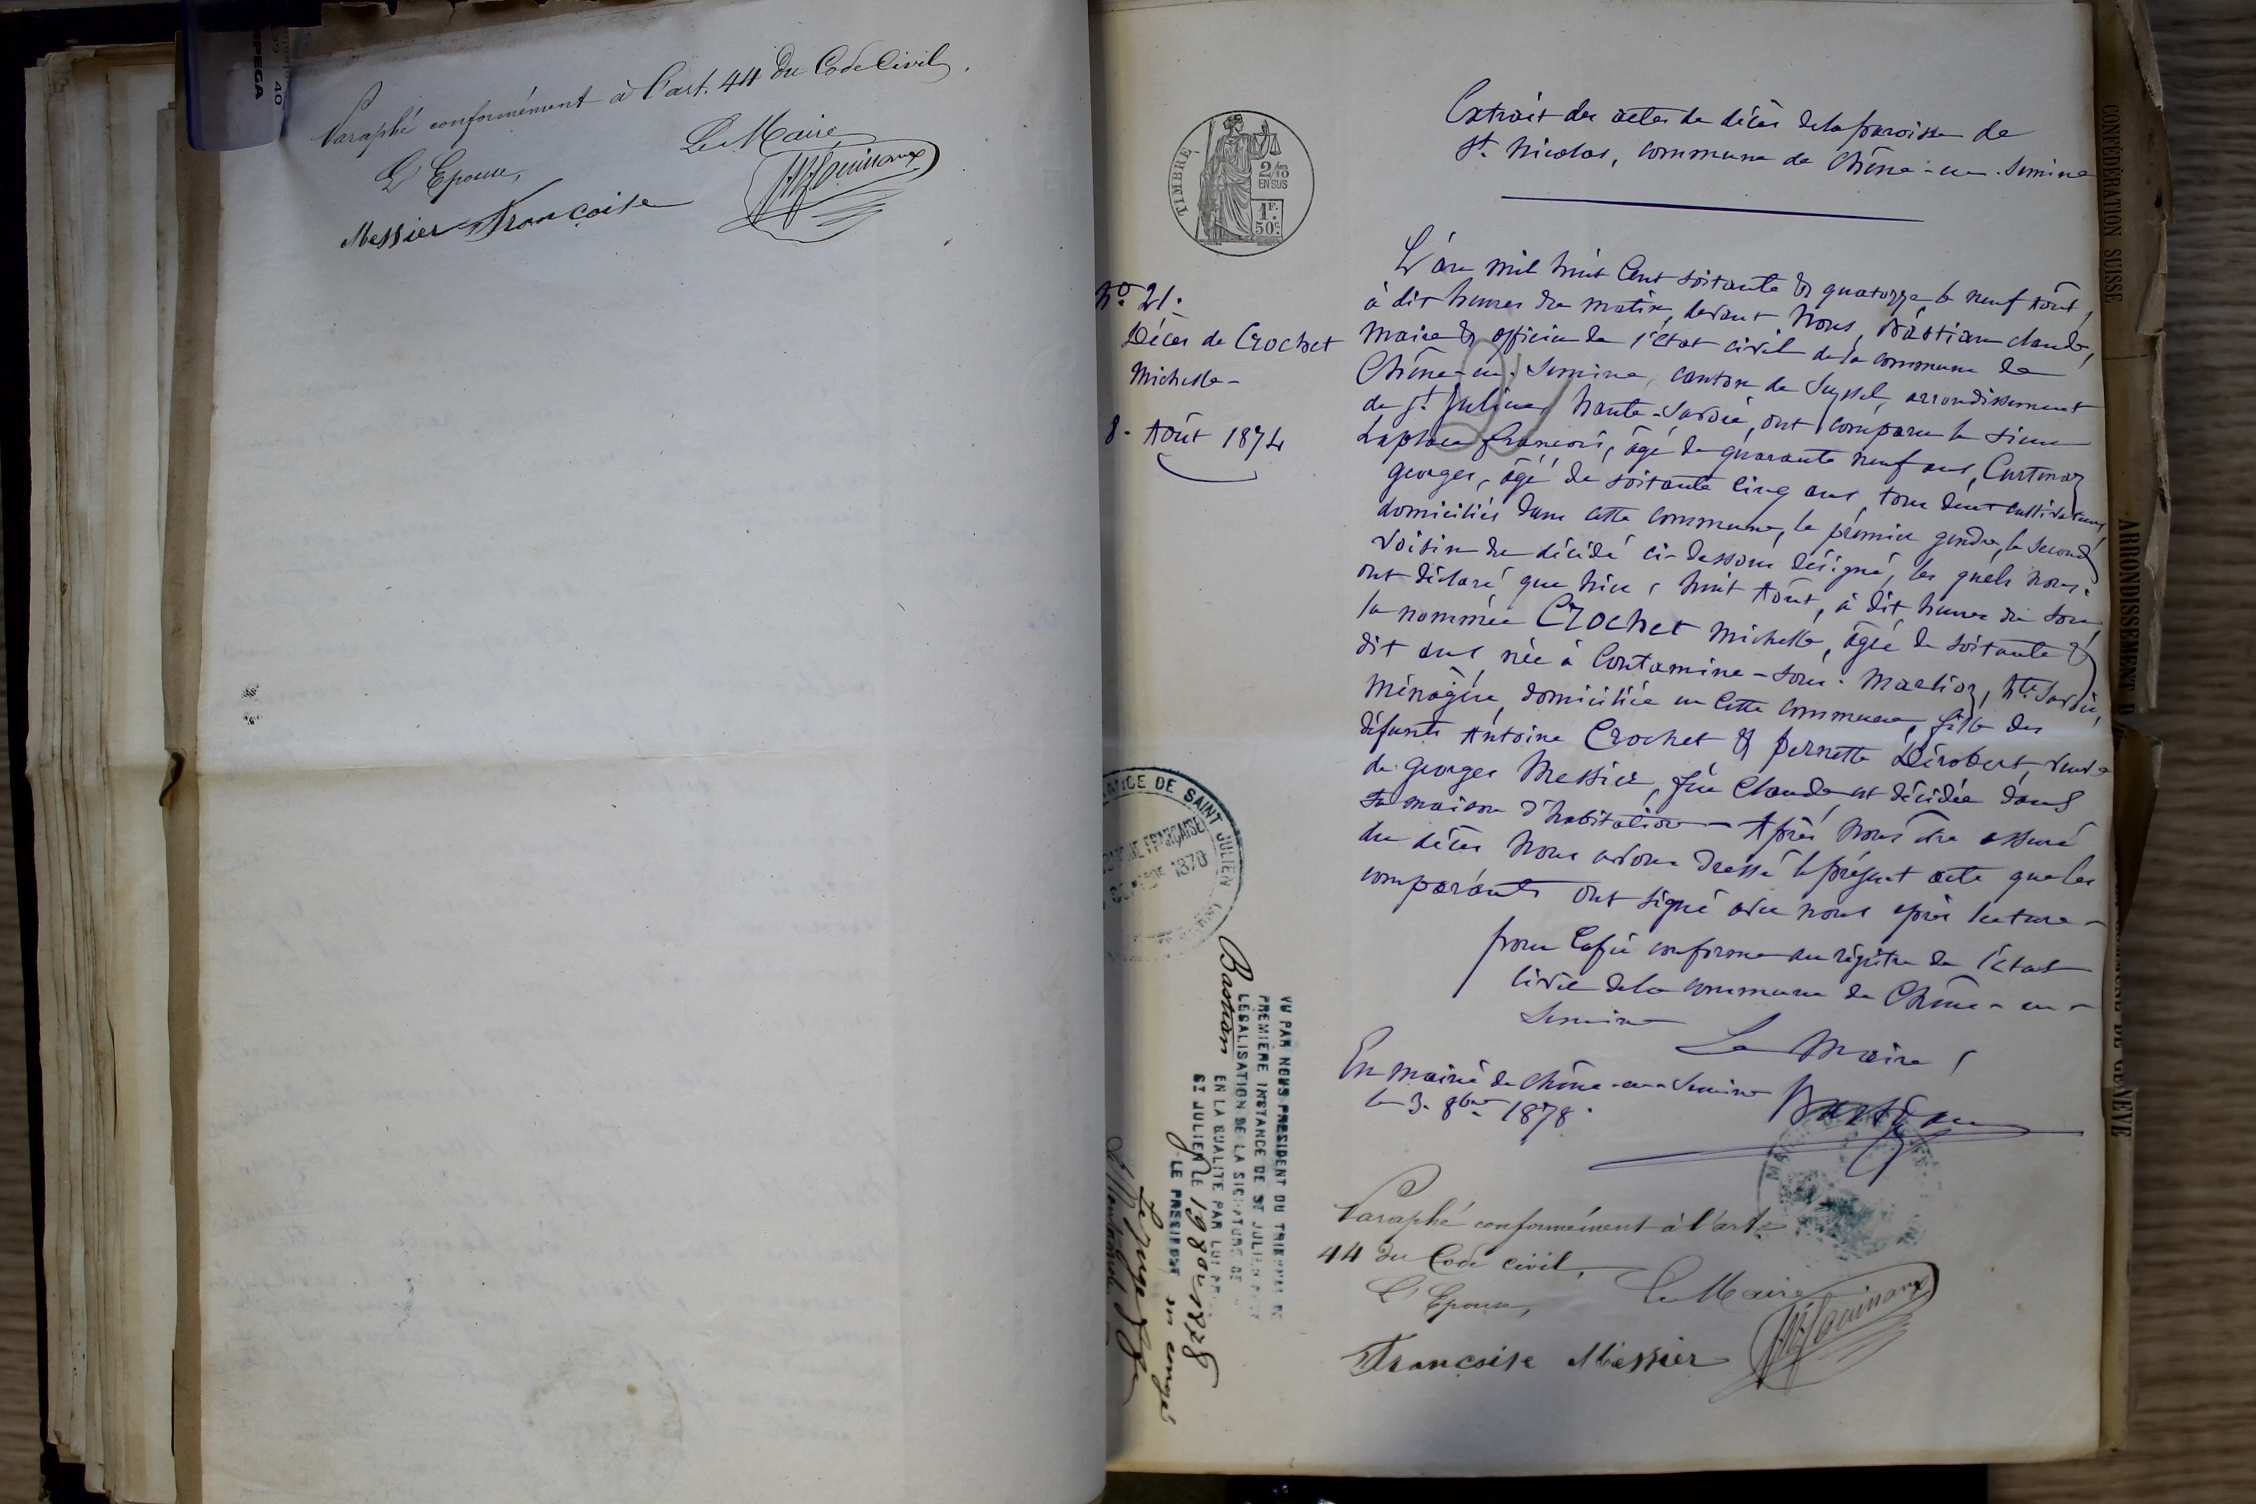 Paraphé conformément à l'art. 44 du Code Civil.
L'Epouse,
Le Maire
Messier Françoise
TIMBRE
2/10
EN SUS
1F.
50c.
Extrait des actes de décès de la paroisse de
St. Nicolas, commune de Chêne-en-Semine
No 21.
Décès de Crochet
Michelle-
8. Août 1874
L'an mil huit Cent soixante & quatorze le neuf Août,
à dix heures du matin, devant Nous, Bastian claude,
Maire & officier de l'état civil de la commune de
Chêne-en-Semine, canton de Seyssel, arrondissement
de St. Julien, haute-Savoie, ont comparu le sieur
Laplace françois, âgé de quarante neuf ans, Curtenaz
georges, âgé de soixante cinq ans, tous deux cultivateurs,
domiciliés dans cette commune, le premier gendre, le second
voisin du décédé ci-dessous désigné, les quels nous
ont déclaré que hier, huit Août, à dix heures du soir,
la nommée Crochet Michelle, âgée de soixante &
dix ans née à Contamine-sous-Marlioz, hte Savoie,
Ménagère, domiciliée en cette commune, fille des
défunts Antoine Crochet & pernette Dérobert, veuve
de georges Messier, feu Claude est décédée dans
sa maison d'habitation - Après Nous être assuré
du décès Nous avons dressé le présent acte que les
comparants ont signé avec nous après lecture -
pour Copie conforme au régistre de l'état
civil de la commune de Chêne-en-
Semine
Le Maire,
En mairie de chêne-en-Semine
le 3. 8bre 1878.
Bastian
Paraphé conformément à l'art.
44 du Code civil,
L'Epouse,
Le Maire
Françoise Messier
DE SAINT JULIEN
FRANÇAISE
1870
VU PAR NOUS PRESIDENT DU TRIBUNAL DE
PREMIÈRE INSTANCE DE ST JULIEN POUR
LEGALISATION DE LA SIGNATURE DE M
Bastian EN LA QUALITE PAR LUI PRISE
ST JULIEN LE 19 8bre 1878
LE PRESIDENT en congé
Le juge
CONFÉDÉRATION SUISSE
ARRONDISSEMENT D
DE GENÈVE
40